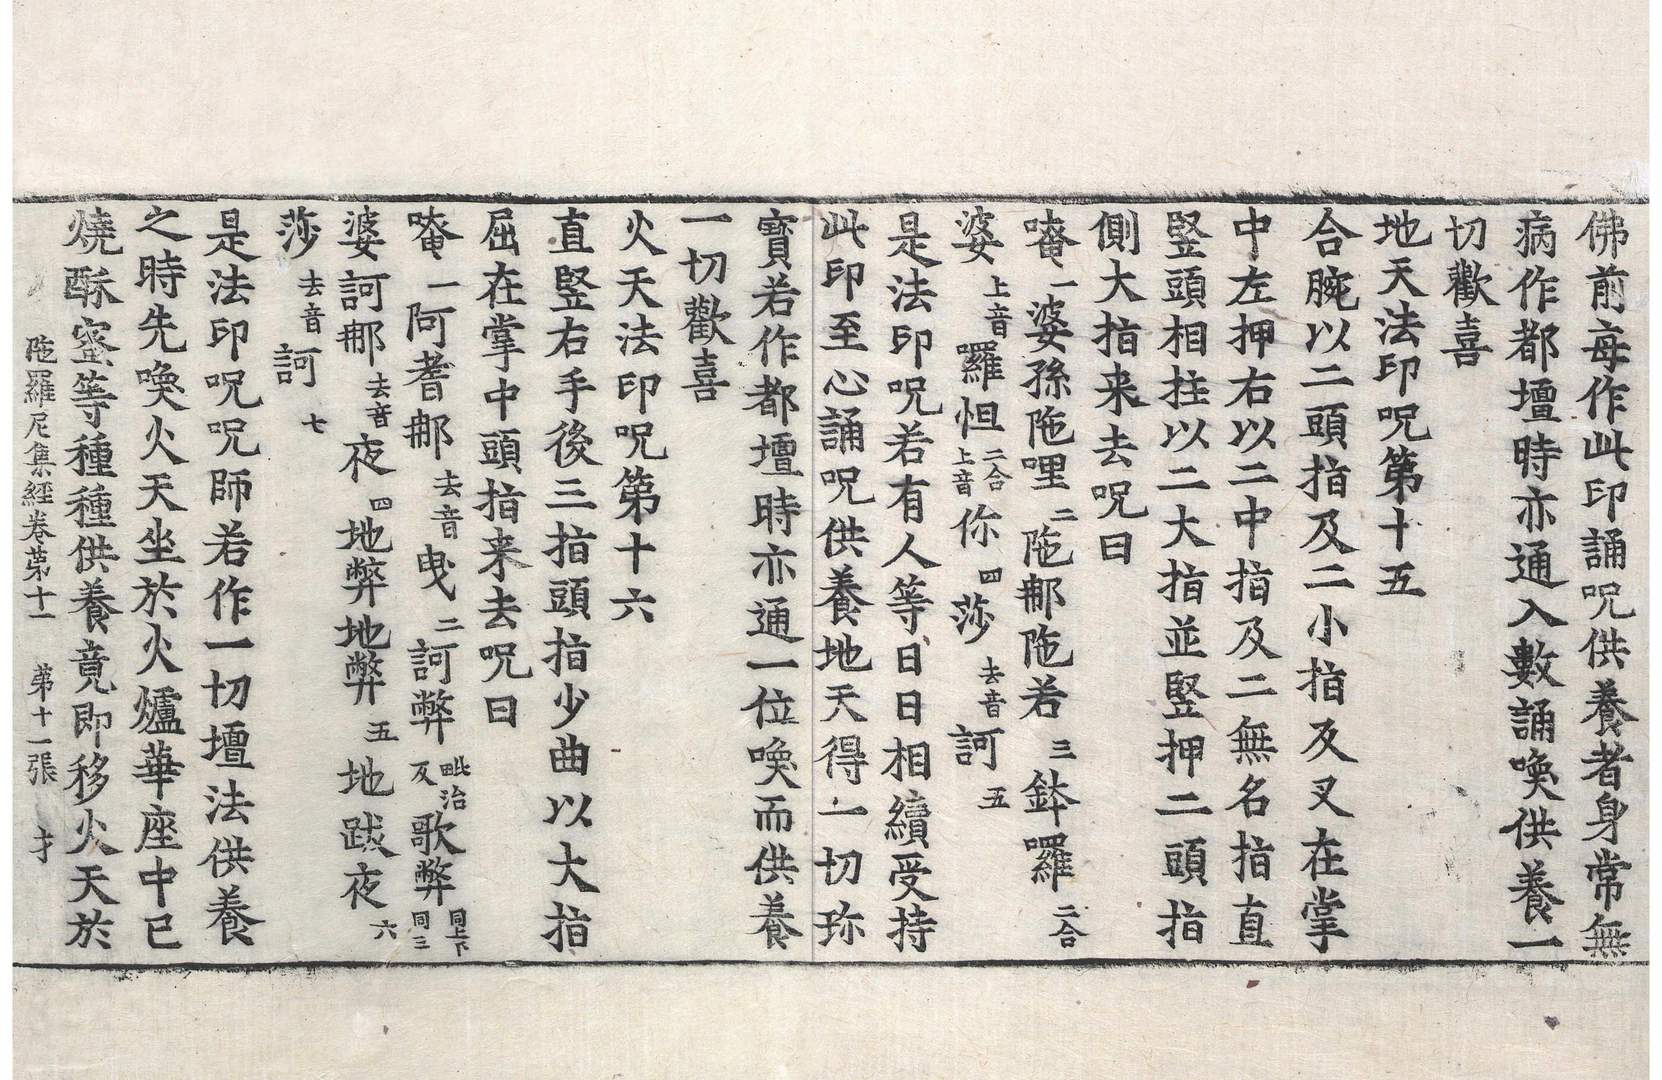 佛前每作此印誦呪供養者身常無
病作都壇時亦通入數誦喚供養一
切歡喜
地天法印呪第十五
合腕以二頭指及二小指反叉在掌
中左押右以二中指及二無名指直
竪頭相拄以二大指並竪押二頭指
側大指来去呪曰
唵一婆孫陁哩二陁𨚗陁若三鉢羅二合
婆上音羅怛二合上音你四莎去音訶五
是法印呪若有人等日日相續受持
此印至心誦呪供養地天得一切珎
寳若作都壇時亦通一位喚而供養
一切歡喜
火天法印呪第十六
直竪右手後三指頭指少曲以大指
屈在掌中頭指来去呪曰
唵一阿耆𨚗去音曳二訶弊毗治反歌弊同上下同三
婆訶𨚗去音夜四地弊地弊五地跋夜六
莎去音訶七
是法印呪呪師若作一切壇法供養
之時先喚火天坐於火爐華座中已
燒酥蜜等種種供養竟即移火天於
陁羅尼集經卷第十一 第十一張 才